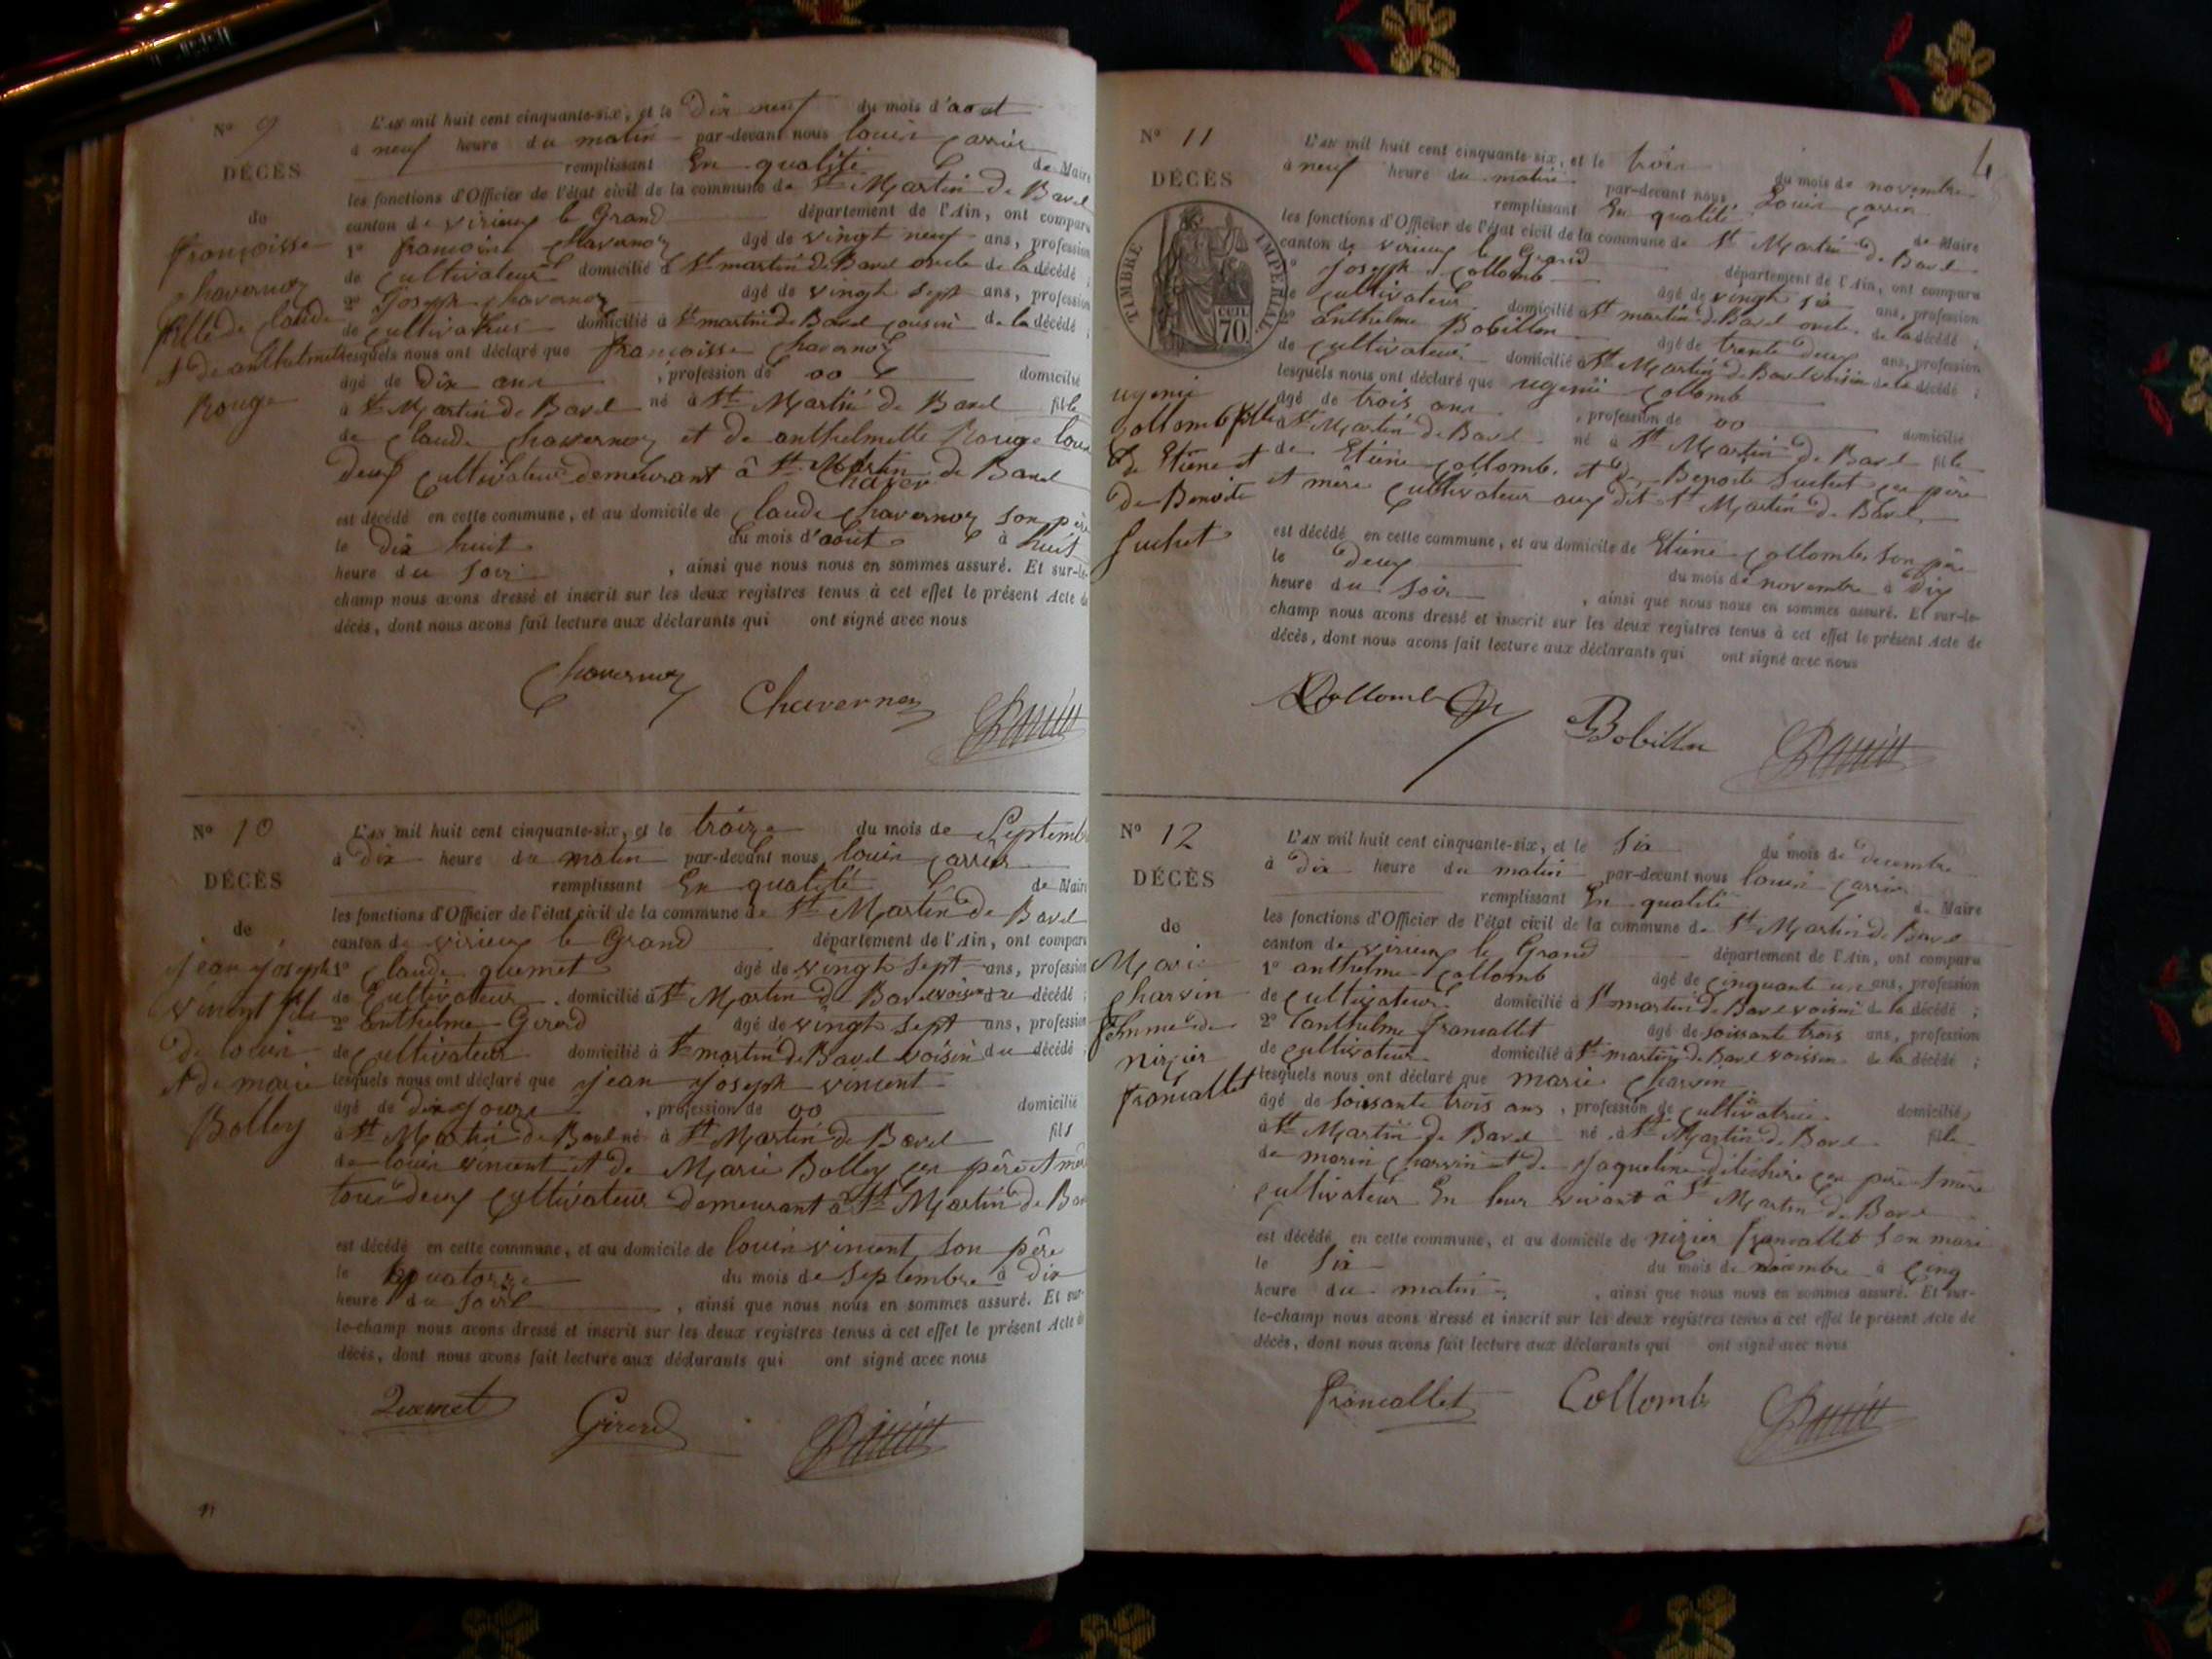 N° 9
DÉCÈS
de
françoisse
Chavernoz
fille de Claude
et de anthelmette
Rouge
L'AN mil huit cent cinquante-six, et le Dix neuf du mois d'aout
à neuf heure du matin par-devant nous louis Carrier
remplissant En qualité de Maire
les fonctions d'Officier de l'état civil de la commune de St Martin De Bavel
canton de virieux le Grand département de l'Ain, ont comparu
1° francoise Chavernoz âgé de vingt neuf ans, profession
de Cultivateur domicilié à St martin De Bavel oncle de la décédé ;
2° Joseph Chavernoz âgé de vingt sept ans, profession
de Cultivateur domicilié à St martin De Bavel Cousin de la décédé ;
lesquels nous ont déclaré que françoisse Chavernoz
âgé de Dix ans, profession de 00 domicilié
à St Martin De Bavel né à St Martin De Bavel fille
de Claude Chavernoz et De anthelmette Rouge tous
deux Cultivateur demeurant à St Martin De Bavel
Chaver
est décédé en cette commune, et au domicile de Claude Chavernoz son père
le dix huit du mois d'aout à huit
heure du soir, ainsi que nous nous en sommes assuré. Et sur-le-
champ nous avons dressé et inscrit sur les deux registres tenus à cet effet le présent Acte de
décès, dont nous avons fait lecture aux déclarants qui ont signé avec nous
Chavernoz Chavernoz
N° 10
DÉCÈS
de
jean joseph
vincent fils
De louis
et de marie
Bolley
L'AN mil huit cent cinquante-six, et le treize du mois de Septemb
à Dix heure du matin par-devant nous louis Carrier
remplissant En qualité de Maire
les fonctions d'Officier de l'état civil de la commune de St Martin De Bavel
canton de virieux le Grand département de l'Ain, ont comparu
1° Claude quemet âgé de vingt sept ans, profession
de Cultivateur domicilié à St Martin De Bavel voisin du décédé ;
2° Enthelme Girerd âgé de vingt sept ans, profession
de Cultivateur domicilié à St martin De Bavel voisin du décédé ;
lesquels nous ont déclaré que jean joseph vincent
âgé de dix jours, profession de 00 domicilié
à St Martin De Bavel né à St Martin De Bavel fils
de louis vincent et de Marie Bolley ces père et mère
tous deux Cultivateur Demeurant à St Martin De Bav
est décédé en cette commune, et au domicile de louis vincent son père
le quatorze du mois de Septembre à dix
heure du soir, ainsi que nous nous en sommes assuré. Et sur-
le-champ nous avons dressé et inscrit sur les deux registres tenus à cet effet le présent Acte de
décès, dont nous avons fait lecture aux déclarants qui ont signé avec nous
Quemet Girerd
4
N° 11
DÉCÈS
TIMBRE IMPERIAL
CENT. 70
ugenie
Collomb fille
de Etiene et
de Benoite
Suchet
L'AN mil huit cent cinquante-six, et le trois du mois de novembre
à neuf heure du matin par-devant nous Louis Carrier
remplissant En qualité de Maire
les fonctions d'Officier de l'état civil de la commune de St Martin De Bavel
canton de virieux le Grand département de l'Ain, ont comparu
1° Joseph Collomb âgé de vingt six ans, profession
de Cultivateur domicilié à St martin De Bavel oncle de la décédé ;
2° Enthelme Bobillon âgé de trente deux ans, profession
de Cultivateur domicilié à St Martin De Bavel voisin de la décédé ;
lesquels nous ont déclaré que ugenie Collomb
âgé de trois ans, profession de 00 domicilié
à St Martin De Bavel né à St Martin De Bavel fille
de Etiene Collomb et De Benoite Suchet ces père
et mère Cultivateur aux dit St Martin De Bavel
est décédé en cette commune, et au domicile de Etiene Collomb son père
le deux du mois de novembre à Dix
heure du soir, ainsi que nous nous en sommes assuré. Et sur-le-
champ nous avons dressé et inscrit sur les deux registres tenus à cet effet le présent Acte de
décès, dont nous avons fait lecture aux déclarants qui ont signé avec nous
Collomb Bobillon
N° 12
DÉCÈS
de
Marie
Charvin
femme de
nizier
francallet
L'AN mil huit cent cinquante-six, et le Six du mois de decembre
à dix heure du matin par-devant nous louis Carrier
remplissant En qualité de Maire
les fonctions d'Officier de l'état civil de la commune de St Martin De Bavel
canton de virieux le Grand département de l'Ain, ont comparu
1° anthelme Collomb âgé de Cinquante un ans, profession
de Cultivateur domicilié à St martin De Bavel voisin de la décédé ;
2° anthelme francallet âgé de soissante trois ans, profession
de Cultivateur domicilié à St martin De Bavel voissin de la décédé ;
lesquels nous ont déclaré que marie Charvin
âgé de soissante trois ans, profession de Cultivatrice domicilié
à St Martin De Bavel né à St Martin De Bavel fille
de marin Charvin et de Jaqueline ces père et mère
Cultivateur En leur vivant à St Martin De Bavel
est décédé en cette commune, et au domicile de nizier francallet son mari
le Six du mois de decembre à Cinq
heure du matin, ainsi que nous nous en sommes assuré. Et sur-
le-champ nous avons dressé et inscrit sur les deux registres tenus à cet effet le présent Acte de
décès, dont nous avons fait lecture aux déclarants qui ont signé avec nous
francallet Collomb